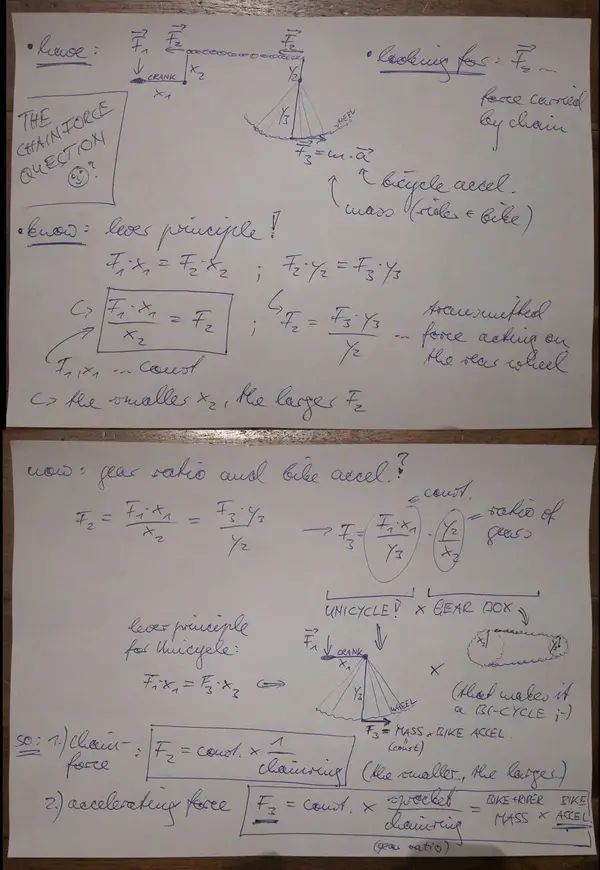 • have:
F₁ F₂ F₂
CRANK
x₁
x₂
y₂
y₃
WHEEL
F₃ = m·a
bicycle accel.
mass (rider + bike)
• looking for: F₂ ...
force carried
by chain
THE
CHAINFORCE
QUESTION
?
• know: lever principle!
F₁·x₁ = F₂·x₂ ; F₂·y₂ = F₃·y₃
F₁·x₁ / x₂ = F₂ ; F₂ = F₃·y₃ / y₂ ... transmitted
force acting on
the rear wheel
F₁, x₁ ... const
the smaller x₂, the larger F₂
now: gear ratio and bike accel.?
F₂ = F₁·x₁ / x₂ = F₃·y₃ / y₂ → F₃ = F₁·x₁ / y₃ · y₂ / x₂
const.
ratio of
gears
UNICYCLE! × GEAR BOX
lever principle
for Unicycle:
F₁·x₁ = F₃·x₃
F₁
CRANK
x₁
y₃
WHEEL
F₃ = MASS × BIKE ACCEL.
(const)
×
(that makes it
a BI-CYCLE ;-)
so: 1.) chain-
force : F₂ = const. × 1 / chainring (the smaller, the larger)
2.) accelerating force F₃ = const. × sprocket / chainring = BIKE+RIDER MASS × BIKE ACCEL.
(gear ratio)